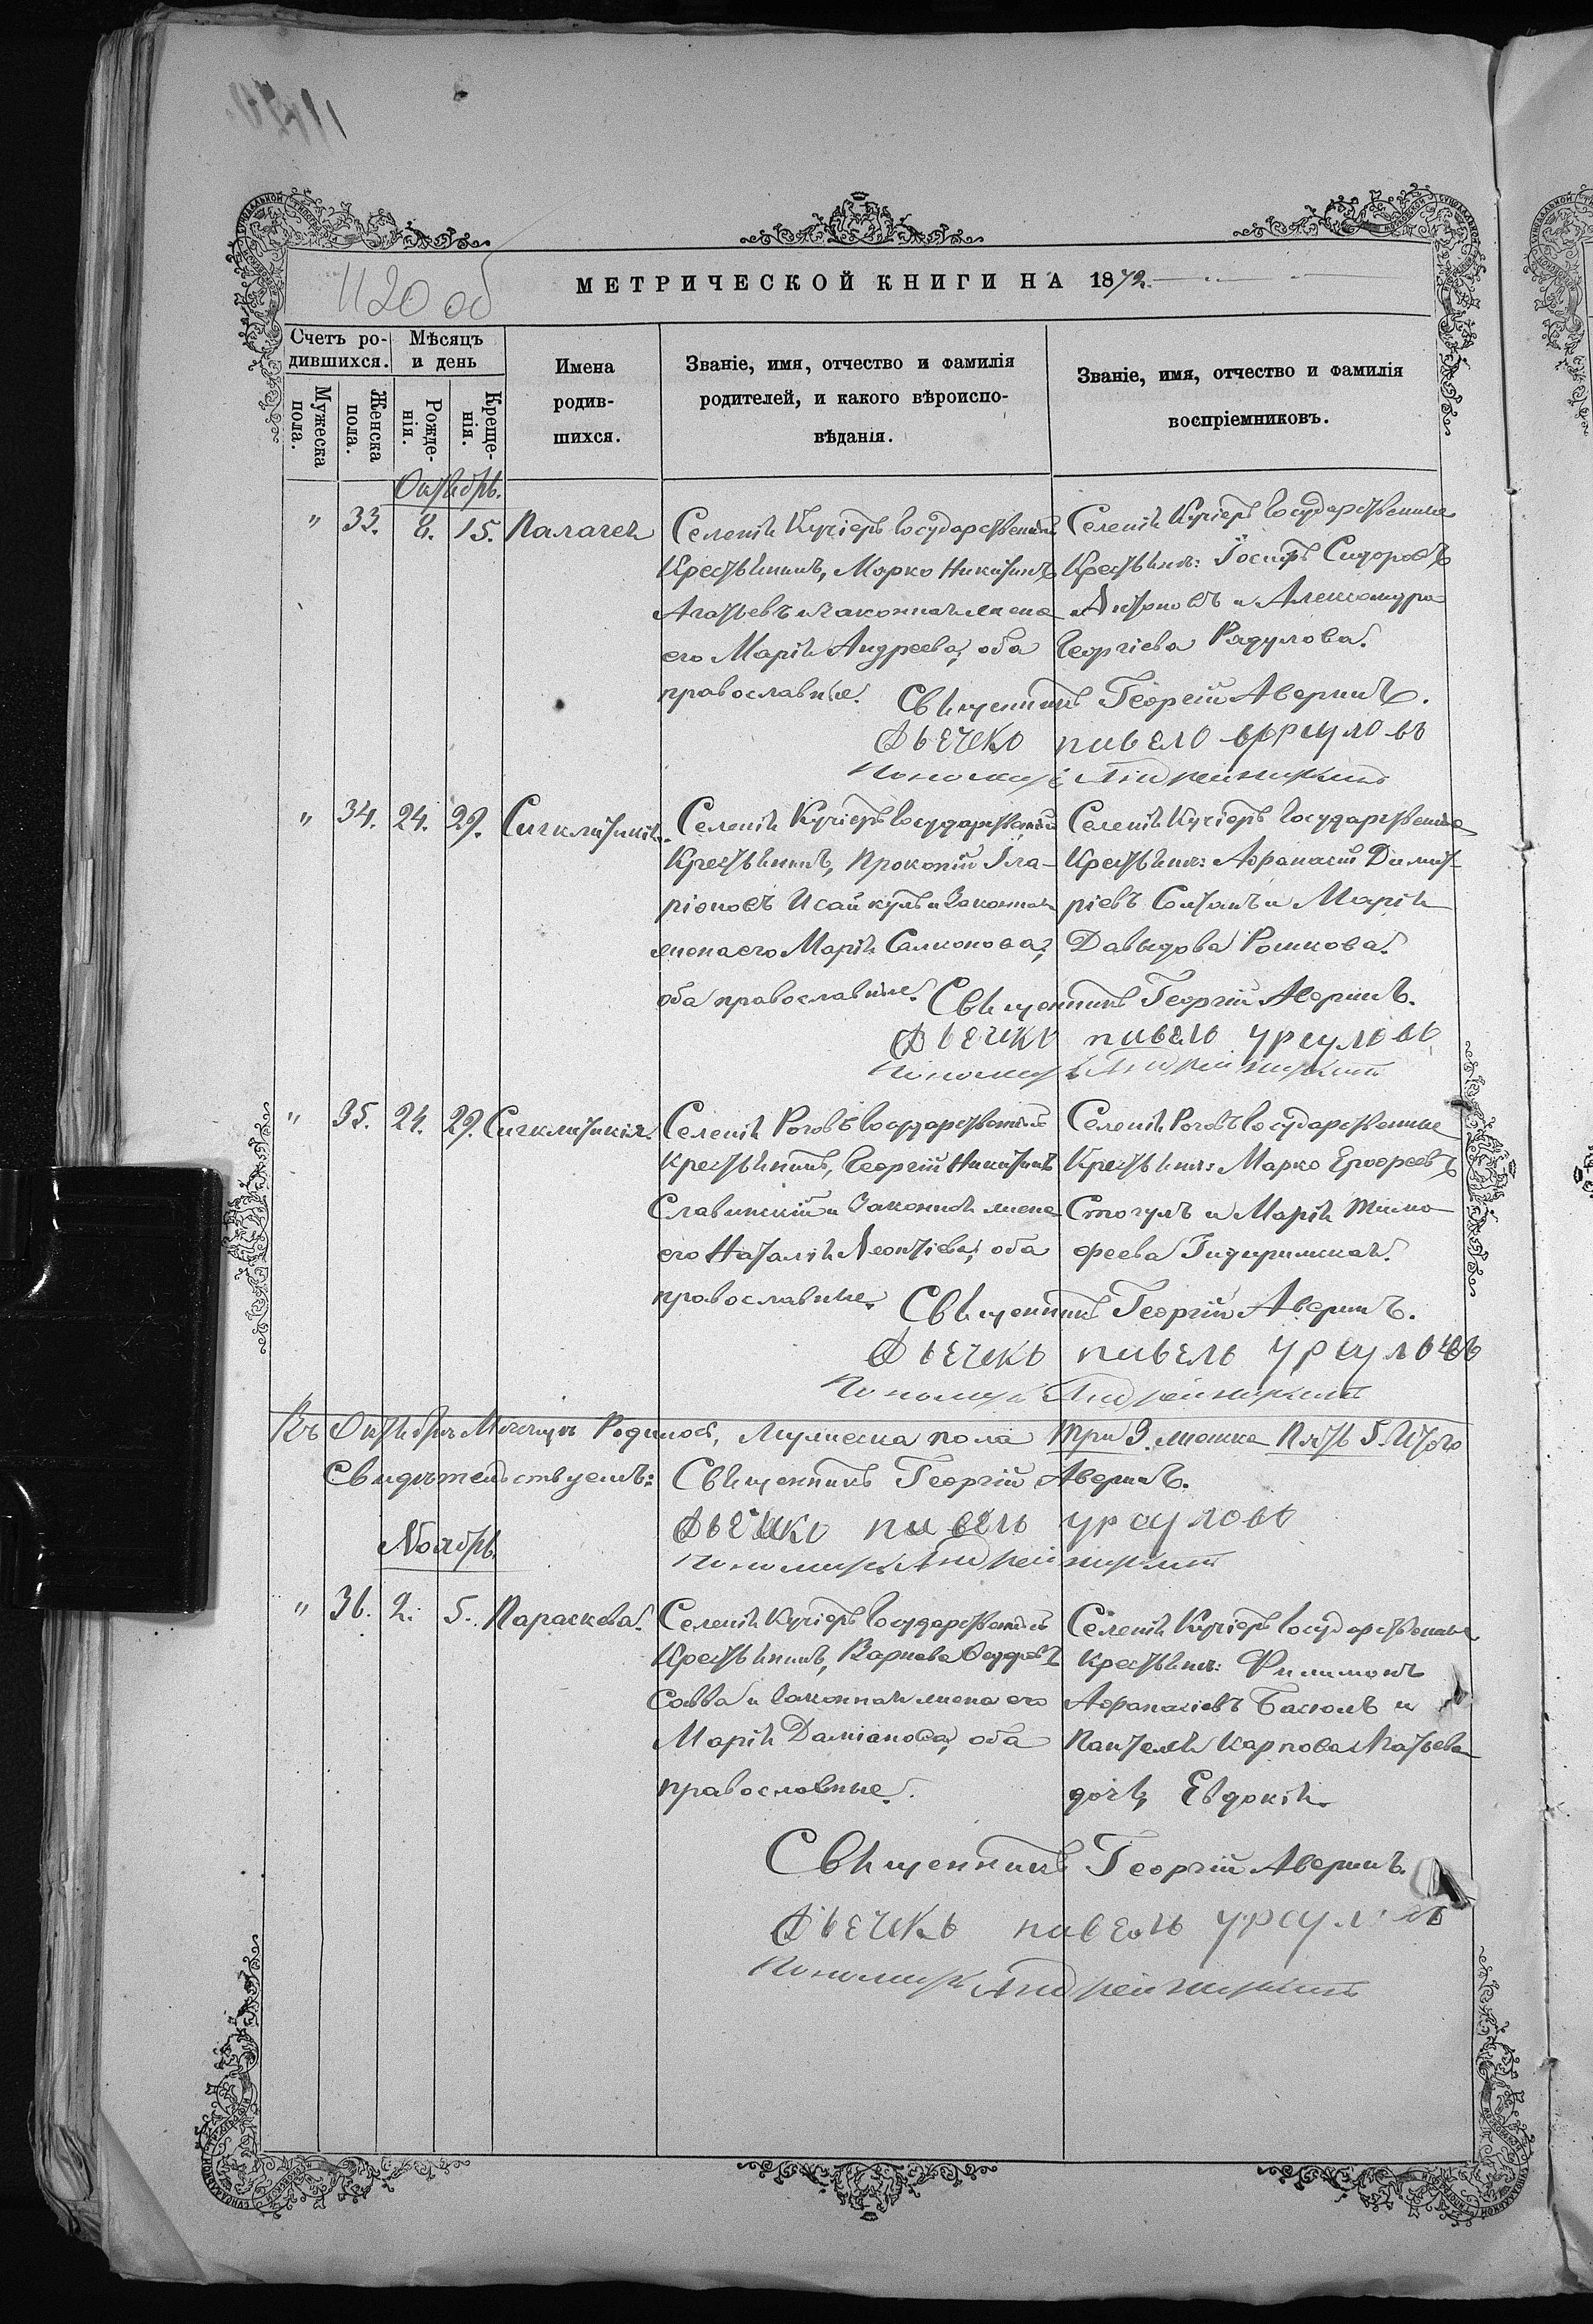 1120 об
МЕТРИЧЕСКОЙ КНИГИ НА 1872.
Счетъ ро-
дившихся.
Мѣсяцъ
и день
Мужеска
пола.
Женска
пола.
Рожде-
нія.
Креще-
нія.
Имена
родив-
шихся.
Званіе, имя, отчество и фамилія
родителей, и какого вѣроиспо-
вѣданія.
Званіе, имя, отчество и фамилія
воспріемниковъ.
Октябрь.
" 33. 8. 15. Палагея
Селенія Кучіеръ Государственный
Крестьянинъ, Марко Никитинъ
Агатьевъ и законная жена
его Марія Андреева, оба
православные.
Селенія Кучіеръ Государственные
Крестьяне: Іосифъ Сидоровъ
Антоновъ и Александра
Георгіева Радулова.
Священникъ Георгій Аверинъ.
Дьячекъ Павелъ Урсуловъ
Пономарь Андрей
" 34. 24. 29. Сигклитикія.
Селенія Кучіеръ Государственный
Крестьянинъ, Прокопій Ила-
ріоновъ Исайкулъ и Законная
жена его Марія Самсонова,
оба православные.
Селенія Кучіеръ Государственные
Крестьяне: Афанасій Димит-
ріевъ Солтанъ и Марія
Давыдова Рошкова.
Священникъ Георгій Аверинъ.
Дьячекъ Павелъ Урсуловъ
Пономарь Андрей
" 35. 24. 29. Сигклитикія.
Селенія Роговъ Государственный
Крестьянинъ, Георгій Никитинъ
Славинскій и Законная жена
его Наталія Леонтіева, оба
православные.
Селенія Роговъ Государственные
Крестьяне: Марко Ерофеевъ
и Марія Тимо-
феева
Священникъ Георгій Аверинъ.
Дьячекъ Павелъ Урсуловъ
Пономарь Андрей
Въ Октябрѣ Месяцѣ Родилось, Мужеска пола Три 3. женска Пять 5. Итого
Свидѣтельствуемъ: Священникъ Георгій Аверинъ.
Дьячекъ Павелъ Урсуловъ
Пономарь Андрей
Ноябрь.
" 36. 2. 5. Параскева.
Селенія Кучіеръ Государственный
Крестьянинъ, Варнава Федоровъ
Савва и Законная жена его
Марія Даміанова, оба
православные.
Селенія Кучіеръ Государственные
Крестьяне: Филимонъ
Афанасіевъ и
Пантелея Карпова
дочь, Евдокія.
Священникъ Георгій Аверинъ.
Дьячекъ Павелъ Урсуловъ
Пономарь Андрей